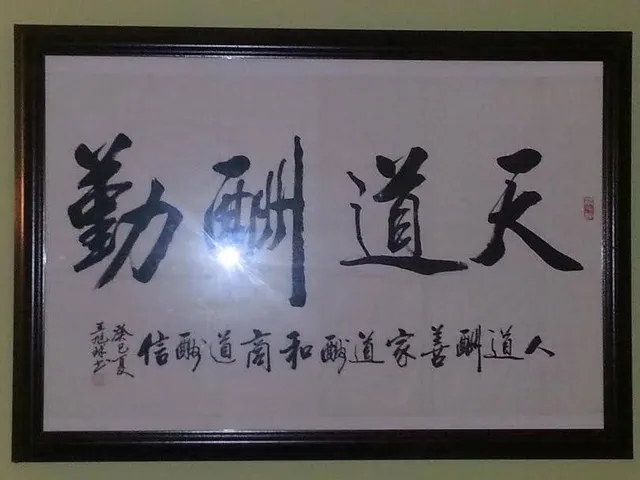 天道酬勤
人道酬善家道酬和商道酬信
癸巳夏